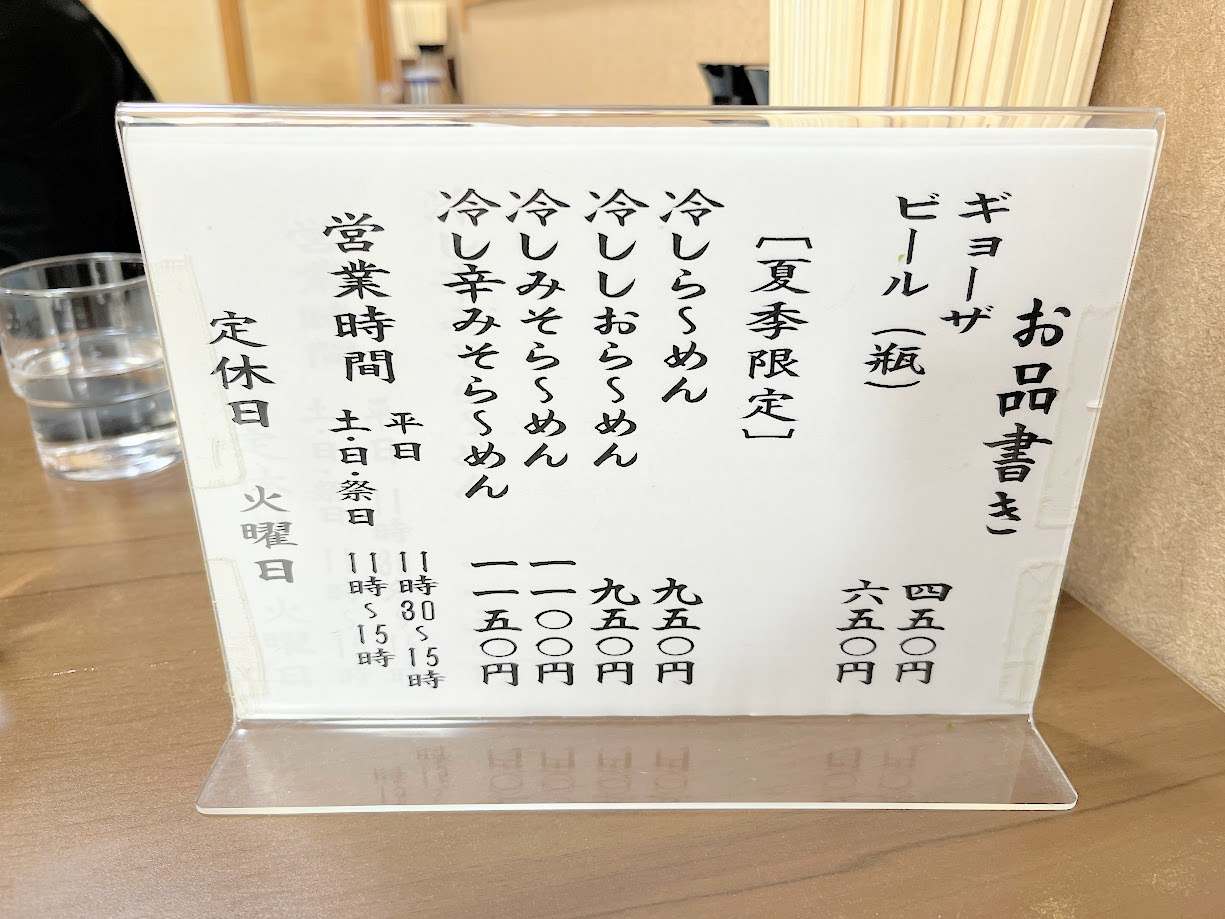 お品書き
ギョーザ 四五〇円
ビール（瓶） 六五〇円
［夏季限定］
冷しら〜めん 九五〇円
冷ししおら〜めん 九五〇円
冷しみそら〜めん 一一〇〇円
冷し辛みそら〜めん 一一五〇円
営業時間 平日 11時30〜15時
土・日・祭日 11時〜15時
定休日 火曜日